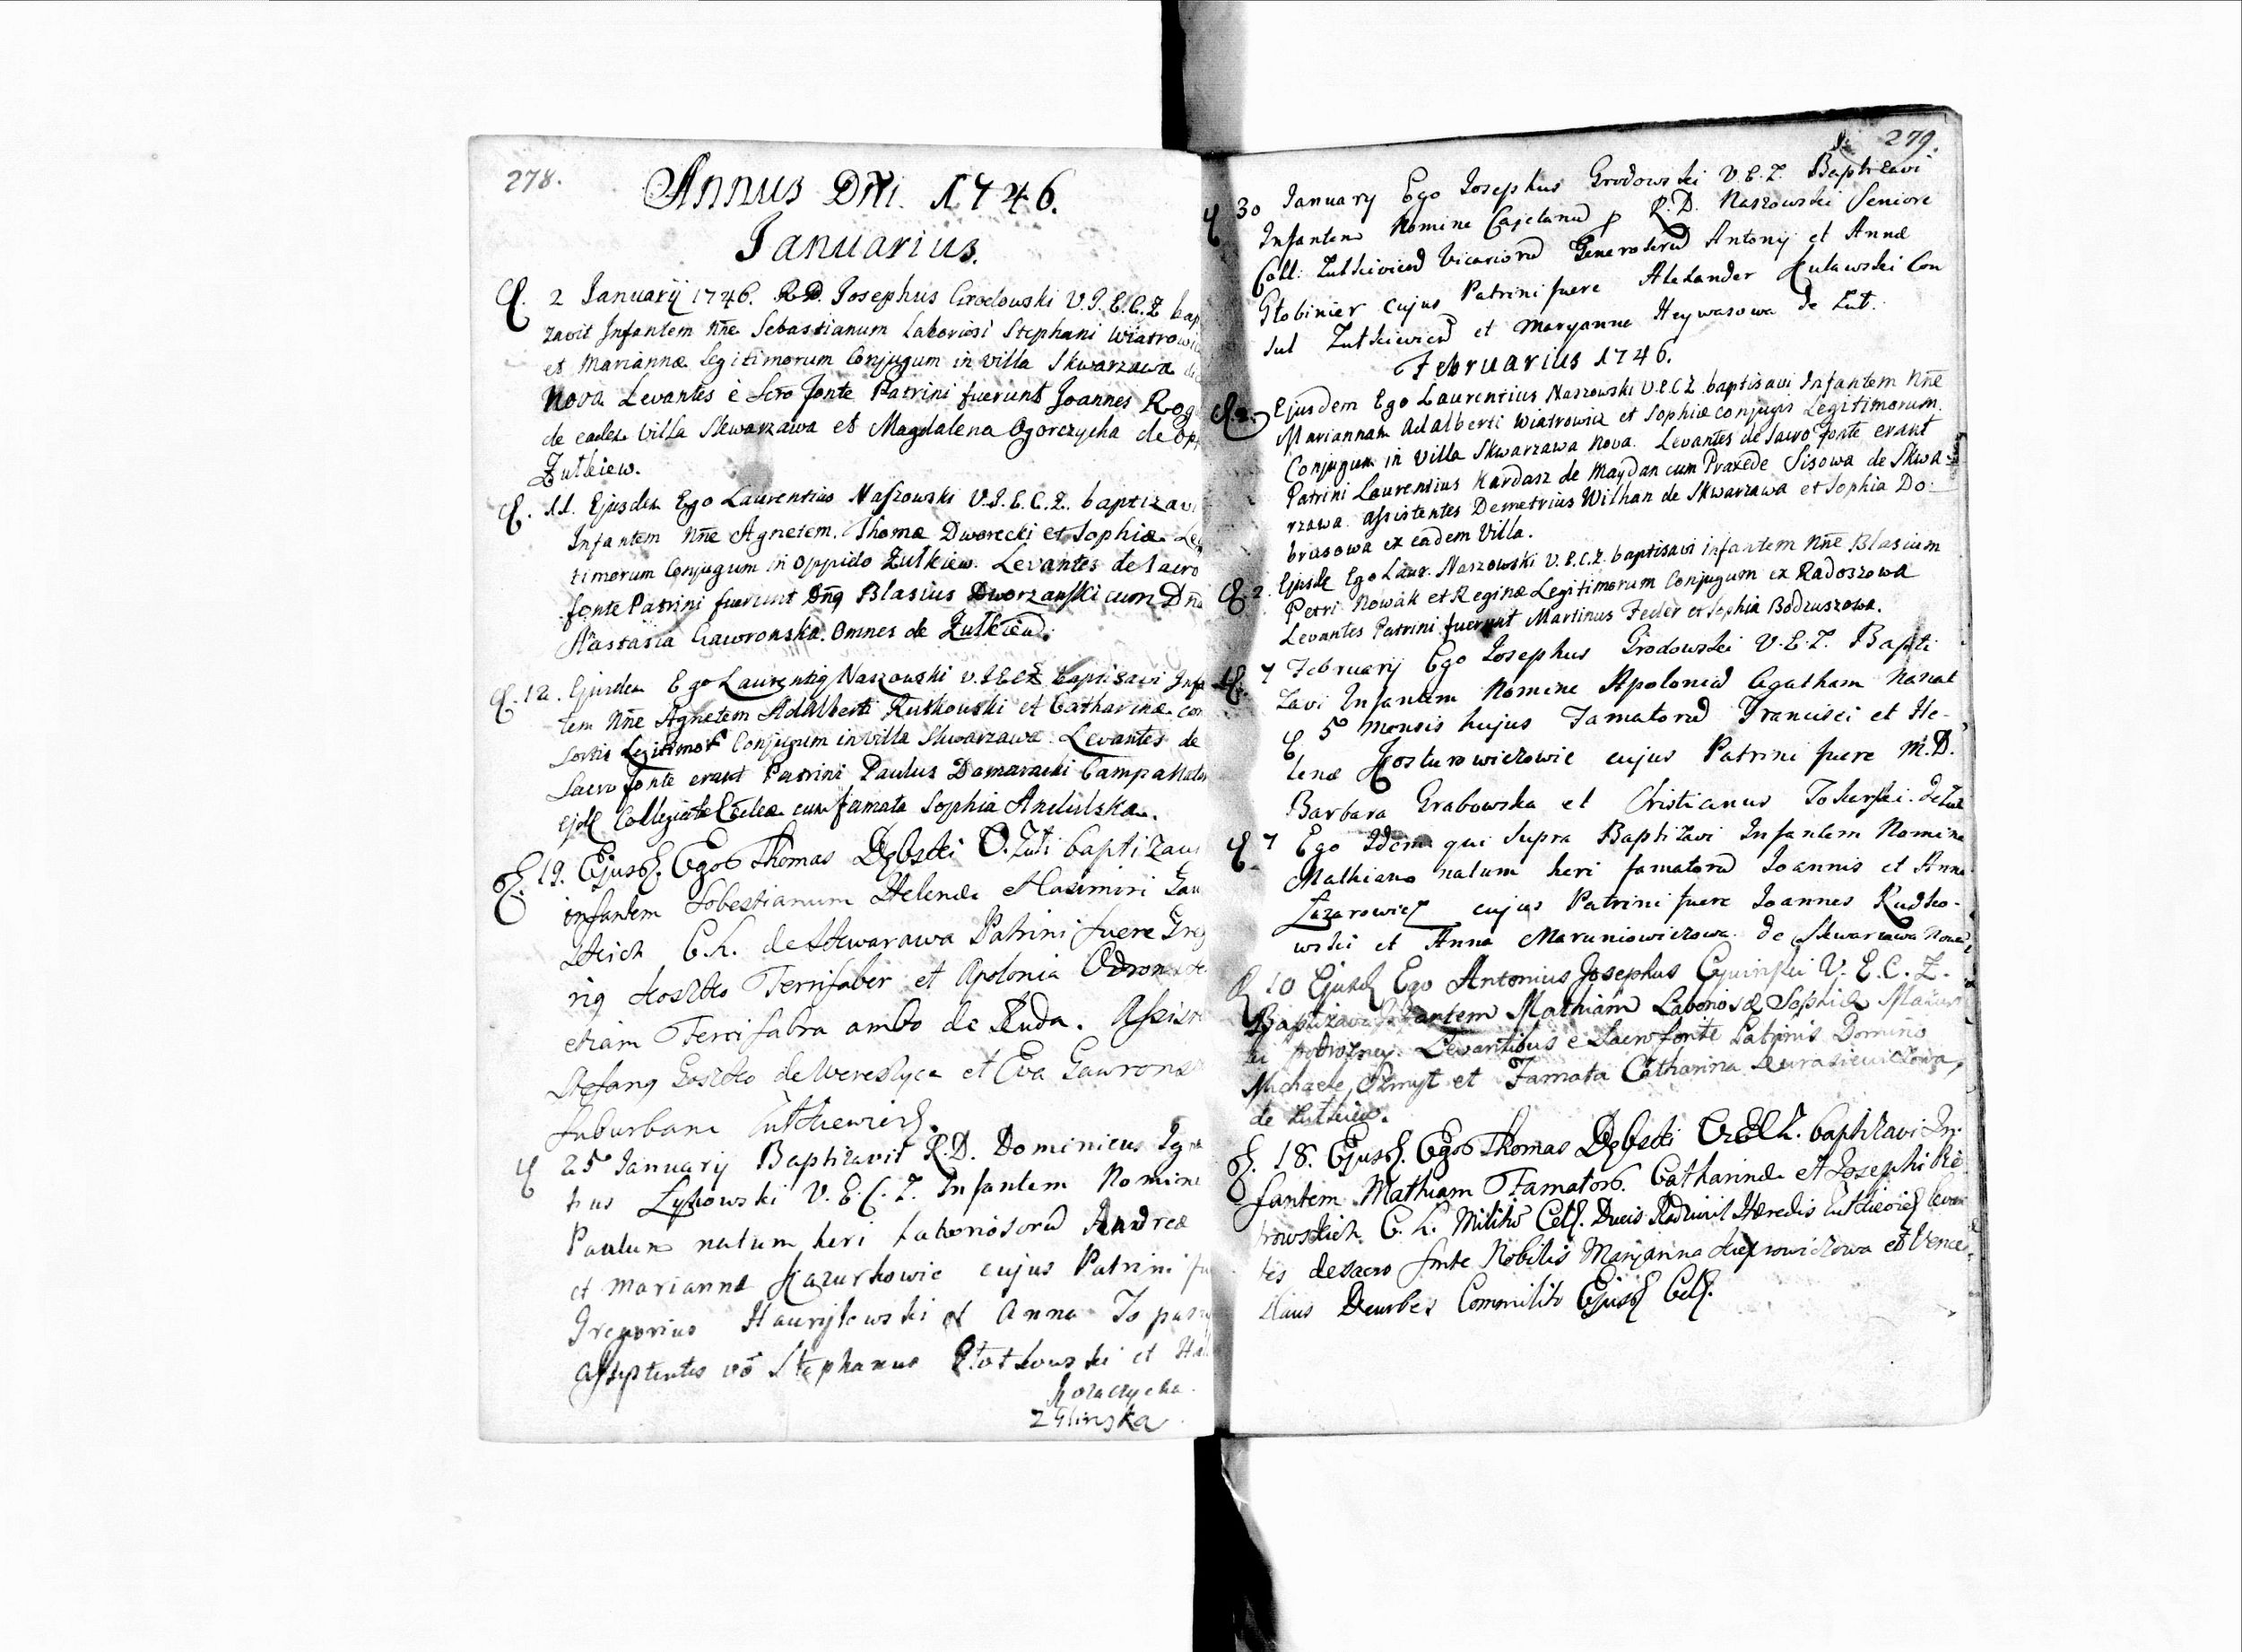 278.
Annus Dñi. 1746.
Januarius.
2 Januarij 1746. R.D. Josephus Grodowski V.J.E.C.Z bap
zavit Infantem Nñe Sebastianum Laboriosi Stephani Wiatrowi
et Mariannæ legitimorum Conjugum in villa Skwarzawa
Nova Levantes è Scro fonte Patrini fuerunt Joannes Rog
de eadem villa Skwarzawa et Magdalena Ogorczycha de Opp
Zutkiew.
11. Ejusdem Ego Laurentius Naszowski V.J.E.C.Z. baptizavi
Infantem Nñe Agnetem. Thomæ Dworecki et Sophiæ Leg
timorum Conjugum in Oppido Zutkiew. Levantes de Sacro
fonte Patrini fuerunt Dñg Blasius Dworzanski cum Dña
Nastasia Gawronska. Omnes de Zutkiew.
12. Ejusdem Ego Laurentig Naszowski V.J.E.C.Z baptisavi Infa
tem Nñe Agnetem Adalberti Rutkowski et Catharinæ con
sortis Legitimor Conjugum in villa Skwarzawa. Levantes de
Sacro fonte erant Patrini Paulus Domaracki Campanator
ejd Collegiatæ Eccleæ cum famata Sophia Andulska.
19. Ejusd. Ego Thomas Dębski baptizavi
infantem Sobestianum Helenæ et Kasimiri Gaw
C.L. de Skwarawa Patrini fuere Greg
rig Koszko Ferrifaber et Apolonia
etiam Ferrifabra ambo de Ruda. Assist
Stefang Goszko de Wereszyca et Eva Gawrons
suburbani Zutkiewien.
25 Januarij Baptizavit R.D. Dominicus Igna
tius Lykowski V.E.C.Z. Infantem Nomine
Paulum natum heri Laboriosorū Andreæ
et Mariannæ Kazurkowic cujus Patrini fu
Gregorius Hauryłewski et Anna
Assistentes vō Stephanus et
Kozaczycha.
Zglinska
279.
30 January Ego Josephus Grodowski V.E.Z. Baptizavi
Infantem Nomine Cajetanū p R.D. Naszowski Seniore
Coll: Zutkiviens Vicariorū Generosorū Antonij et Annæ
Głobinier cujus Patrini fuere Alexander Kulawski Con
sul Zutkiewien et Maryanna Heywasowa de Zut.
Februarius 1746.
Ejusdem Ego Laurentius Naszowski V.E.C.Z. baptisavi Infantem Nñe
Mariannam Adalberti Wiatrowicz et Sophiæ conjugis Legitimorum
Conjugum in Villa Skwarzawa Nova. Levantes de Sacro fonte erant
Patrini Laurentius Kardasz de Maydan cum Praxede Sisowa de Skwa-
rzawa. Assistentes Demetrius Wilhan de Skwarzawa et Sophia Do:
briasowa ex eadem Villa.
2. Ejusde Ego Laur. Naszowski V.E.C.Z. baptisavi infantem Nñe Blasium
Petri Nowak et Reginæ Legitimorum Conjugum ex Radoszowa
Levantes Patrini fuerunt Martinus Feder et Sophia Bodzuszowa.
7 February Ego Josephus Grodowski V.E.Z. Bapti
zavi Infantem Nomine Apoloniā Agatham Natat
5 mensis hujus Famatorū Francisci et He-
lenæ Kosturowiczowic cujus Patrini fuere M.D.
Barbara Grabowska et Christianus Tokarski. de Zut
7 Ego Idem qui Supra Baptizavi Infantem Nomine
Mathiam natum heri famatorū Joannis et Annæ
Lazarowicz cujus Patrini fuere Joannes Rudko-
wski et Anna Maruniowiczowa. de Skwarzawa Nova
10 Ejusd Ego Antonius Josephus V.E.C.Z.
Baptizavi Infantem Mathiam Laboriosæ Sophiæ
Levantibus e Sacro fonte Patrinis Domino
Michaele Szmyt et Famata Catharina
de Zutkiew.
18. Ejusd. Ego Thomas Dębski V.E.C.Z. baptizavi In-
fantem Mathiam Famator. Catharinæ et Josephi Pie
trowskich C.L. Militis Cels. Ducis Radziwił Hæredis Zutkiovien levan
tes de sacro fonte Nobilis Marjanna et Vence-
slaus Deurber Commilito Ejusd Cels.